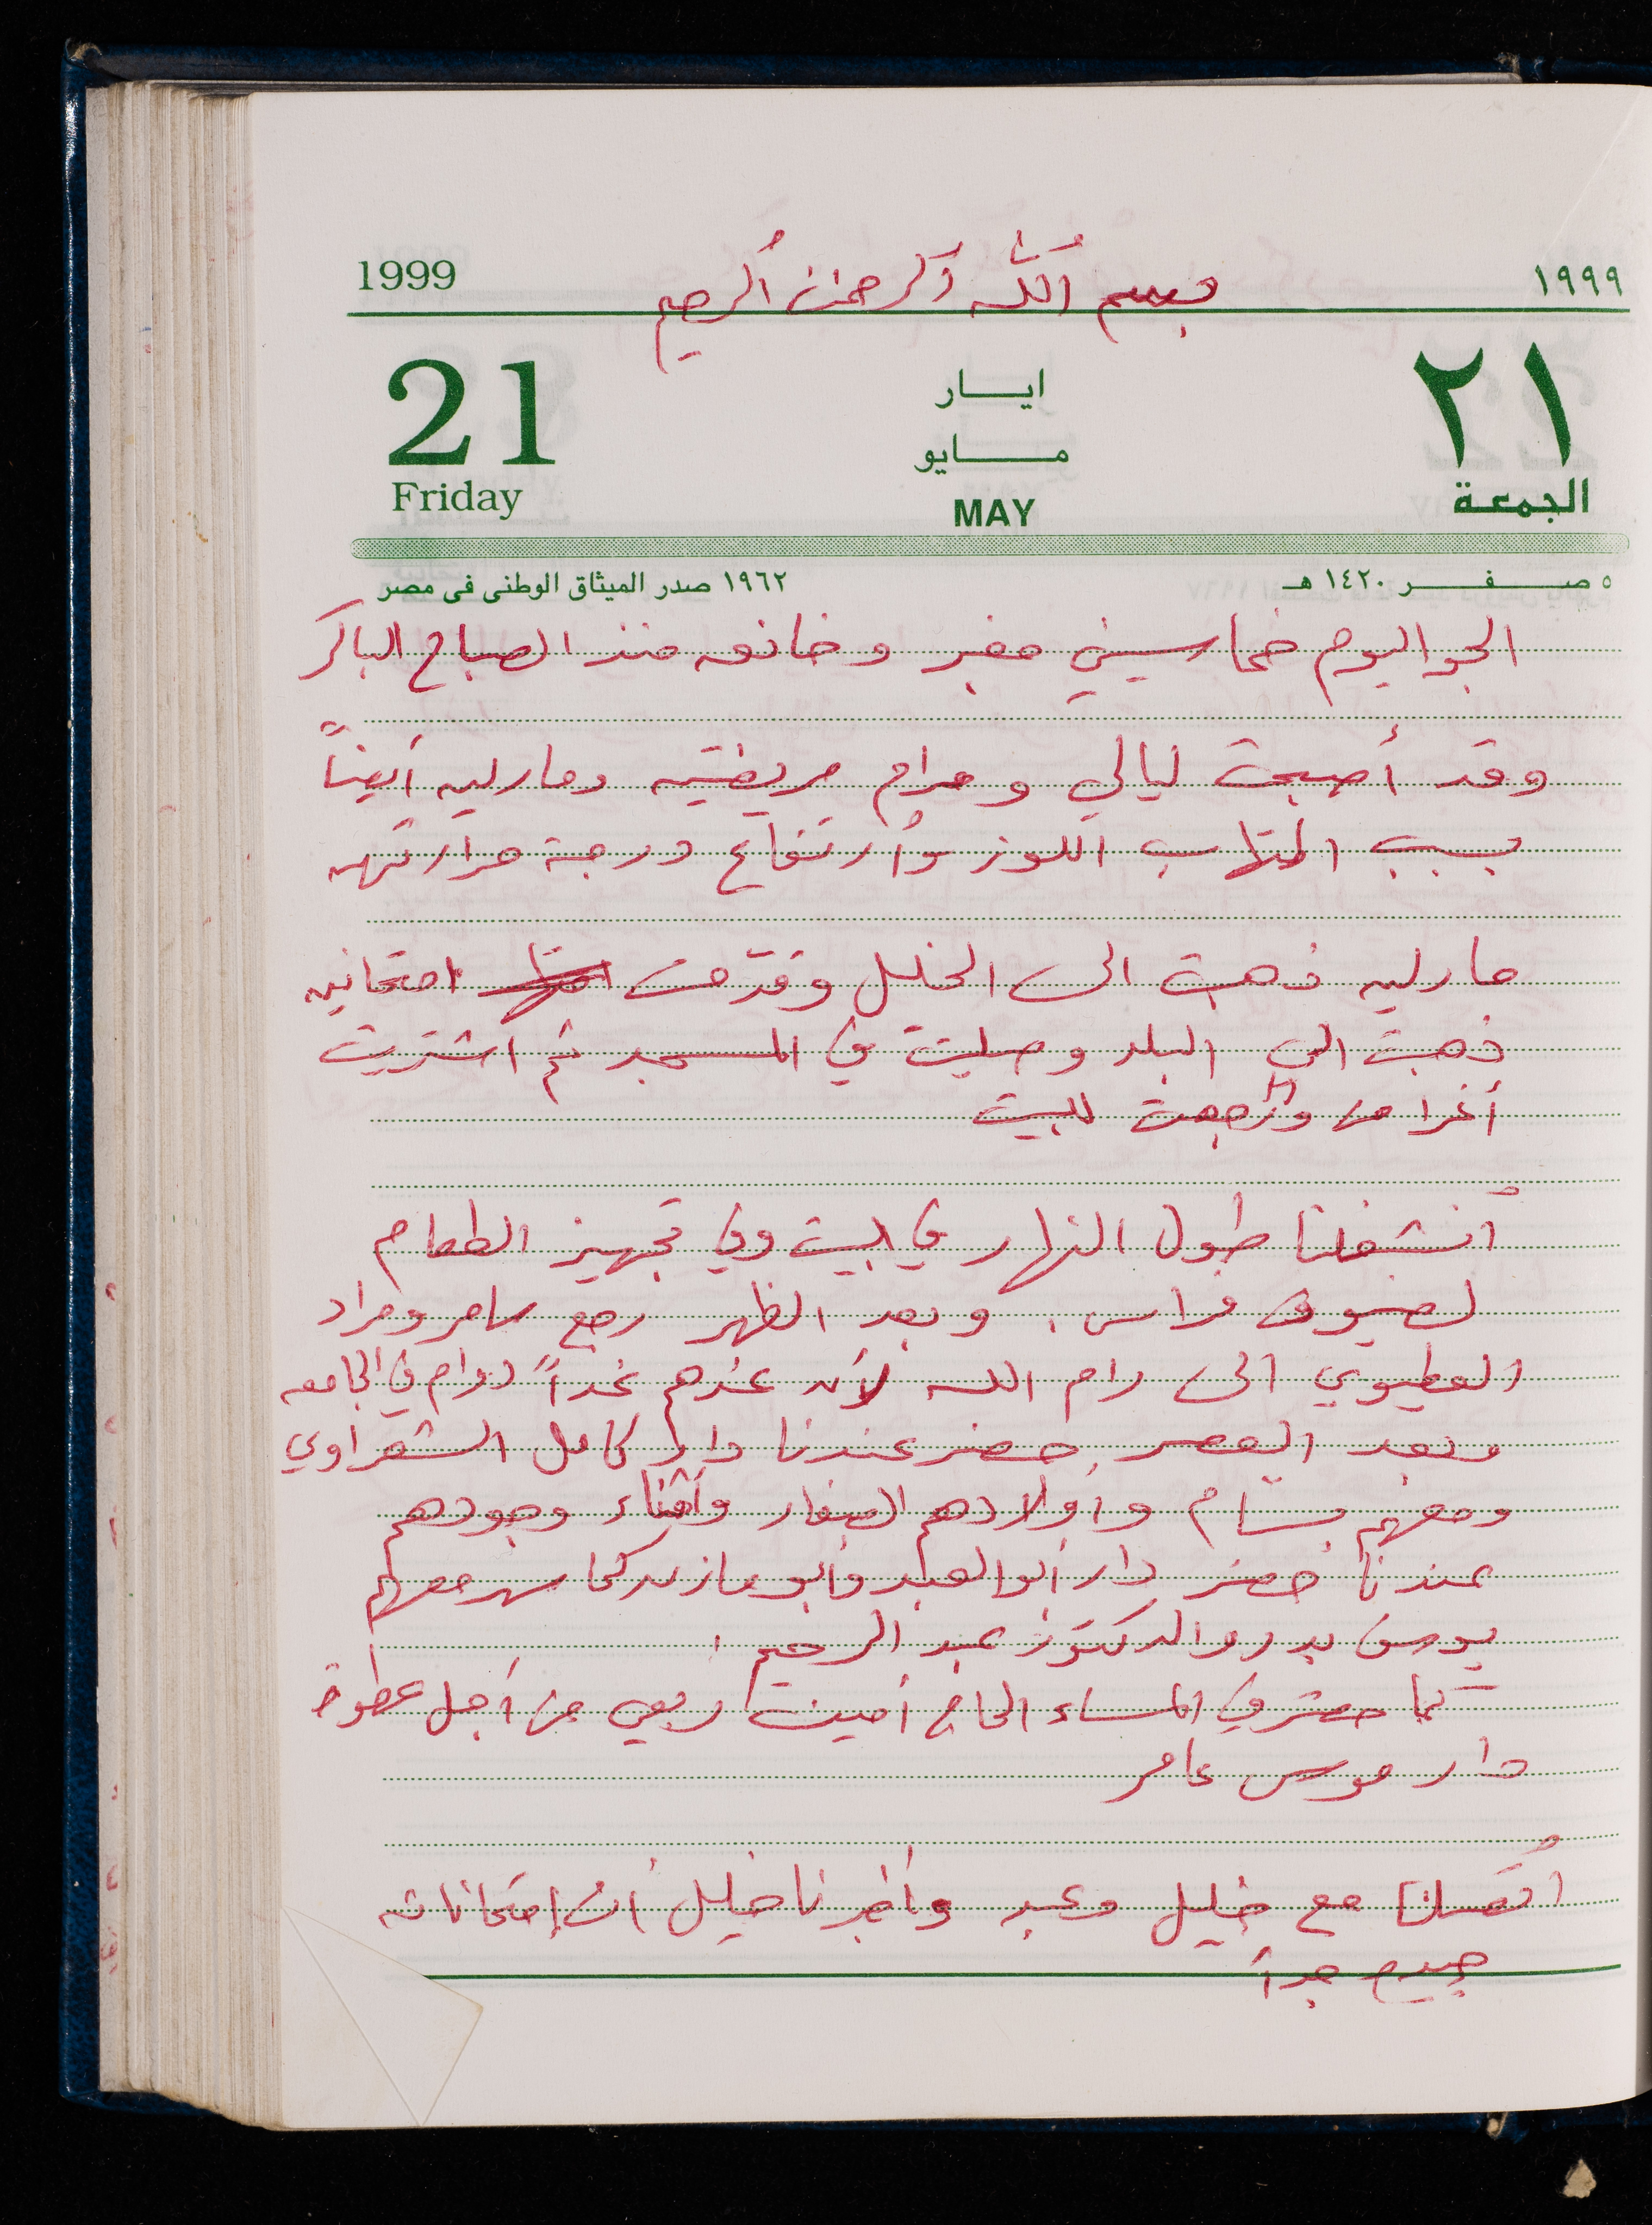 بسم الله الرحمن الرحيم
1999 ١٩٩٩
21 ايار ٢١
مايو
Friday MAY الجمعة
٥ صفر ١٤٢٠ هـ ١٩٦٢ صدر الميثاق الوطنى فى مصر
الجو اليوم خماسيني مغبر وخانق منذ الصباح الباكر
وقد أصبحت ليالي ومرام مريضتين ومارلين أيضاً
بسبب التهاب اللوز وأرتفاع درجة حرارتهن
مارلين ذهبت الى الخليل وقدمت امتحانين
ذهبت الى البلد وصليت في المسجد ثم اشتريت
أغراض ورجعت للبيت
أنشغلنا طول النهار في البيت وفي تجهيز الطعام
لضيوف فراس . وبعد الظهر رجع سامر ومراد
العطيوي الى رام الله لأن عندهم غداً دوام في الجامعه
وبعد العصر حضر عندنا دار كامل الشعراوي
ومعهم بسام وأولادهم الصغار وأثناء وجودهم
عندنا حضر دار أبو العبد وأبو مازن كما سهر معهم
يوسف بدر والدكتور عبد الرحيم .
كما حضر في المساء الحاج أمين ربعي من أجل عطوة
دار موسى عامر
أتصلنا مع خليل وعبد وأخبرنا خليل أن إمتحاناته
جيده جداً